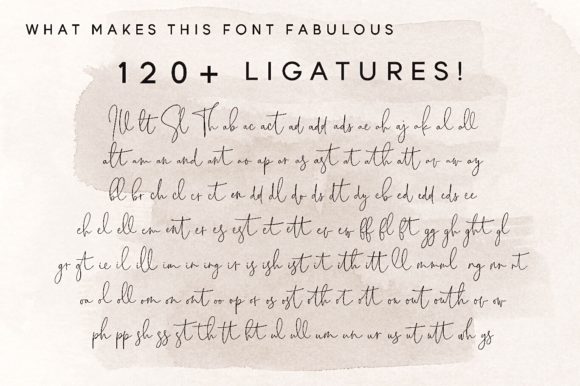 WHAT MAKES THIS FONT FABULOUS
120+ LIGATURES!
Ill tt Sl Th ab ac act ad add ads ae ah aj ak al all
alt am an and ant ao ap ar as ast at ath att av aw ay
bl br ch cl cr ct en dd dl do ds dt dy eb ed edd eds ee
eh el ell em ent er es est et ett ev ew ff fl ft gg gh ght gl
gr gt ie il ill im in ing ir is ish ist it ith itt ll mmul ng nn nt
oa ol oll om on ont oo op or os ost oth ot ott ou out outh ov ow
ph pp sh ss st th tt ht ul ull um un ur us ut utt wh ys